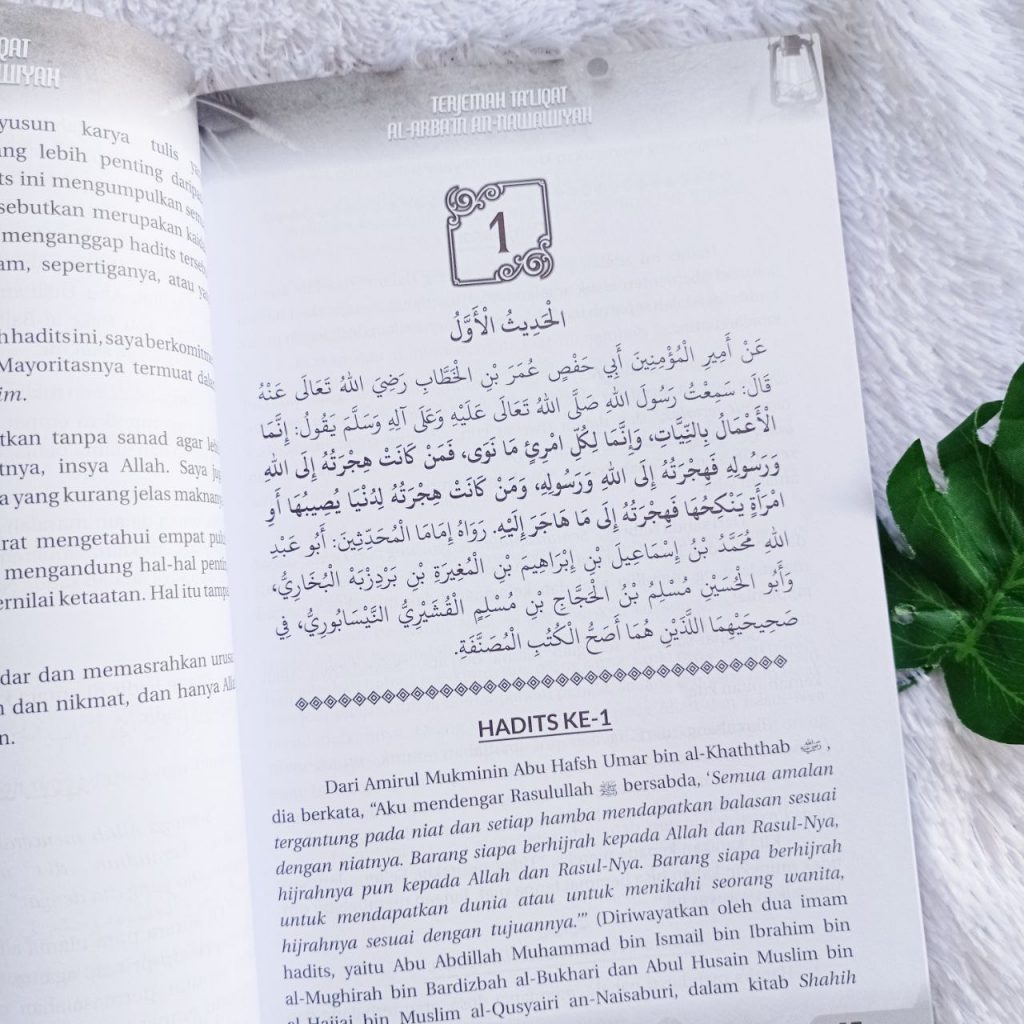 QAT
yusun karya tulis
ang lebih penting
ts ini mengumpulkan
sebutkan merupakan
menganggap hadits
am, sepertiganya, atau
h hadits ini, saya
Mayoritasnya termuat
im.
tkan tanpa sanad agar
tnya, insya Allah. Saya
a yang kurang jelas
arat mengetahui empat
mengandung hal-hal
ernilai ketaatan. Hal itu
dar dan memasrahkan
n dan nikmat, dan hanya
n.
TERJEMAH TA'LIQAT
AL-ARBA'IN AN-NAWAWIYAH
1
الْحَدِيثُ الْأَوَّلُ
عَنْ أَمِيرِ الْمُؤْمِنِينَ أَبِي حَفْصٍ عُمَرَ بْنِ الْخَطَّابِ رَضِيَ اللهُ تَعَالَى عَنْهُ
قَالَ: سَمِعْتُ رَسُولَ اللهِ صَلَّى اللهُ تَعَالَى عَلَيْهِ وَعَلَى آلِهِ وَسَلَّمَ يَقُولُ: إِنَّمَا
الْأَعْمَالُ بِالنِّيَّاتِ، وَإِنَّمَا لِكُلِّ امْرِئٍ مَا نَوَى، فَمَنْ كَانَتْ هِجْرَتُهُ إِلَى اللهِ
وَرَسُولِهِ فَهِجْرَتُهُ إِلَى اللهِ وَرَسُولِهِ، وَمَنْ كَانَتْ هِجْرَتُهُ لِدُنْيَا يُصِيبُهَا أَوِ
امْرَأَةٍ يَنْكِحُهَا فَهِجْرَتُهُ إِلَى مَا هَاجَرَ إِلَيْهِ. رَوَاهُ إِمَامَا الْمُحَدِّثِينَ: أَبُو عَبْدِ
اللهِ مُحَمَّدُ بْنُ إِسْمَاعِيلَ بْنِ إِبْرَاهِيمَ بْنِ الْمُغِيرَةِ بْنِ بَرْدِزْبَهْ الْبُخَارِيُّ،
وَأَبُو الْحُسَيْنِ مُسْلِمُ بْنُ الْحَجَّاجِ بْنِ مُسْلِمٍ الْقُشَيْرِيُّ النَّيْسَابُورِيُّ، فِي
صَحِيحَيْهِمَا اللَّذَيْنِ هُمَا أَصَحُّ الْكُتُبِ الْمُصَنَّفَةِ.
HADITS KE-1
Dari Amirul Mukminin Abu Hafsh Umar bin al-Khaththab ,
dia berkata, “Aku mendengar Rasulullah ﷺ bersabda, ‘Semua amalan
tergantung pada niat dan setiap hamba mendapatkan balasan sesuai
dengan niatnya. Barang siapa berhijrah kepada Allah dan Rasul-Nya,
hijrahnya pun kepada Allah dan Rasul-Nya. Barang siapa berhijrah
untuk mendapatkan dunia atau untuk menikahi seorang wanita,
hijrahnya sesuai dengan tujuannya.’” (Diriwayatkan oleh dua imam
hadits, yaitu Abu Abdillah Muhammad bin Ismail bin Ibrahim bin
al-Mughirah bin Bardizbah al-Bukhari dan Abul Husain Muslim bin
al-Hajjaj bin Muslim al-Qusyairi an-Naisaburi, dalam kitab Shahih